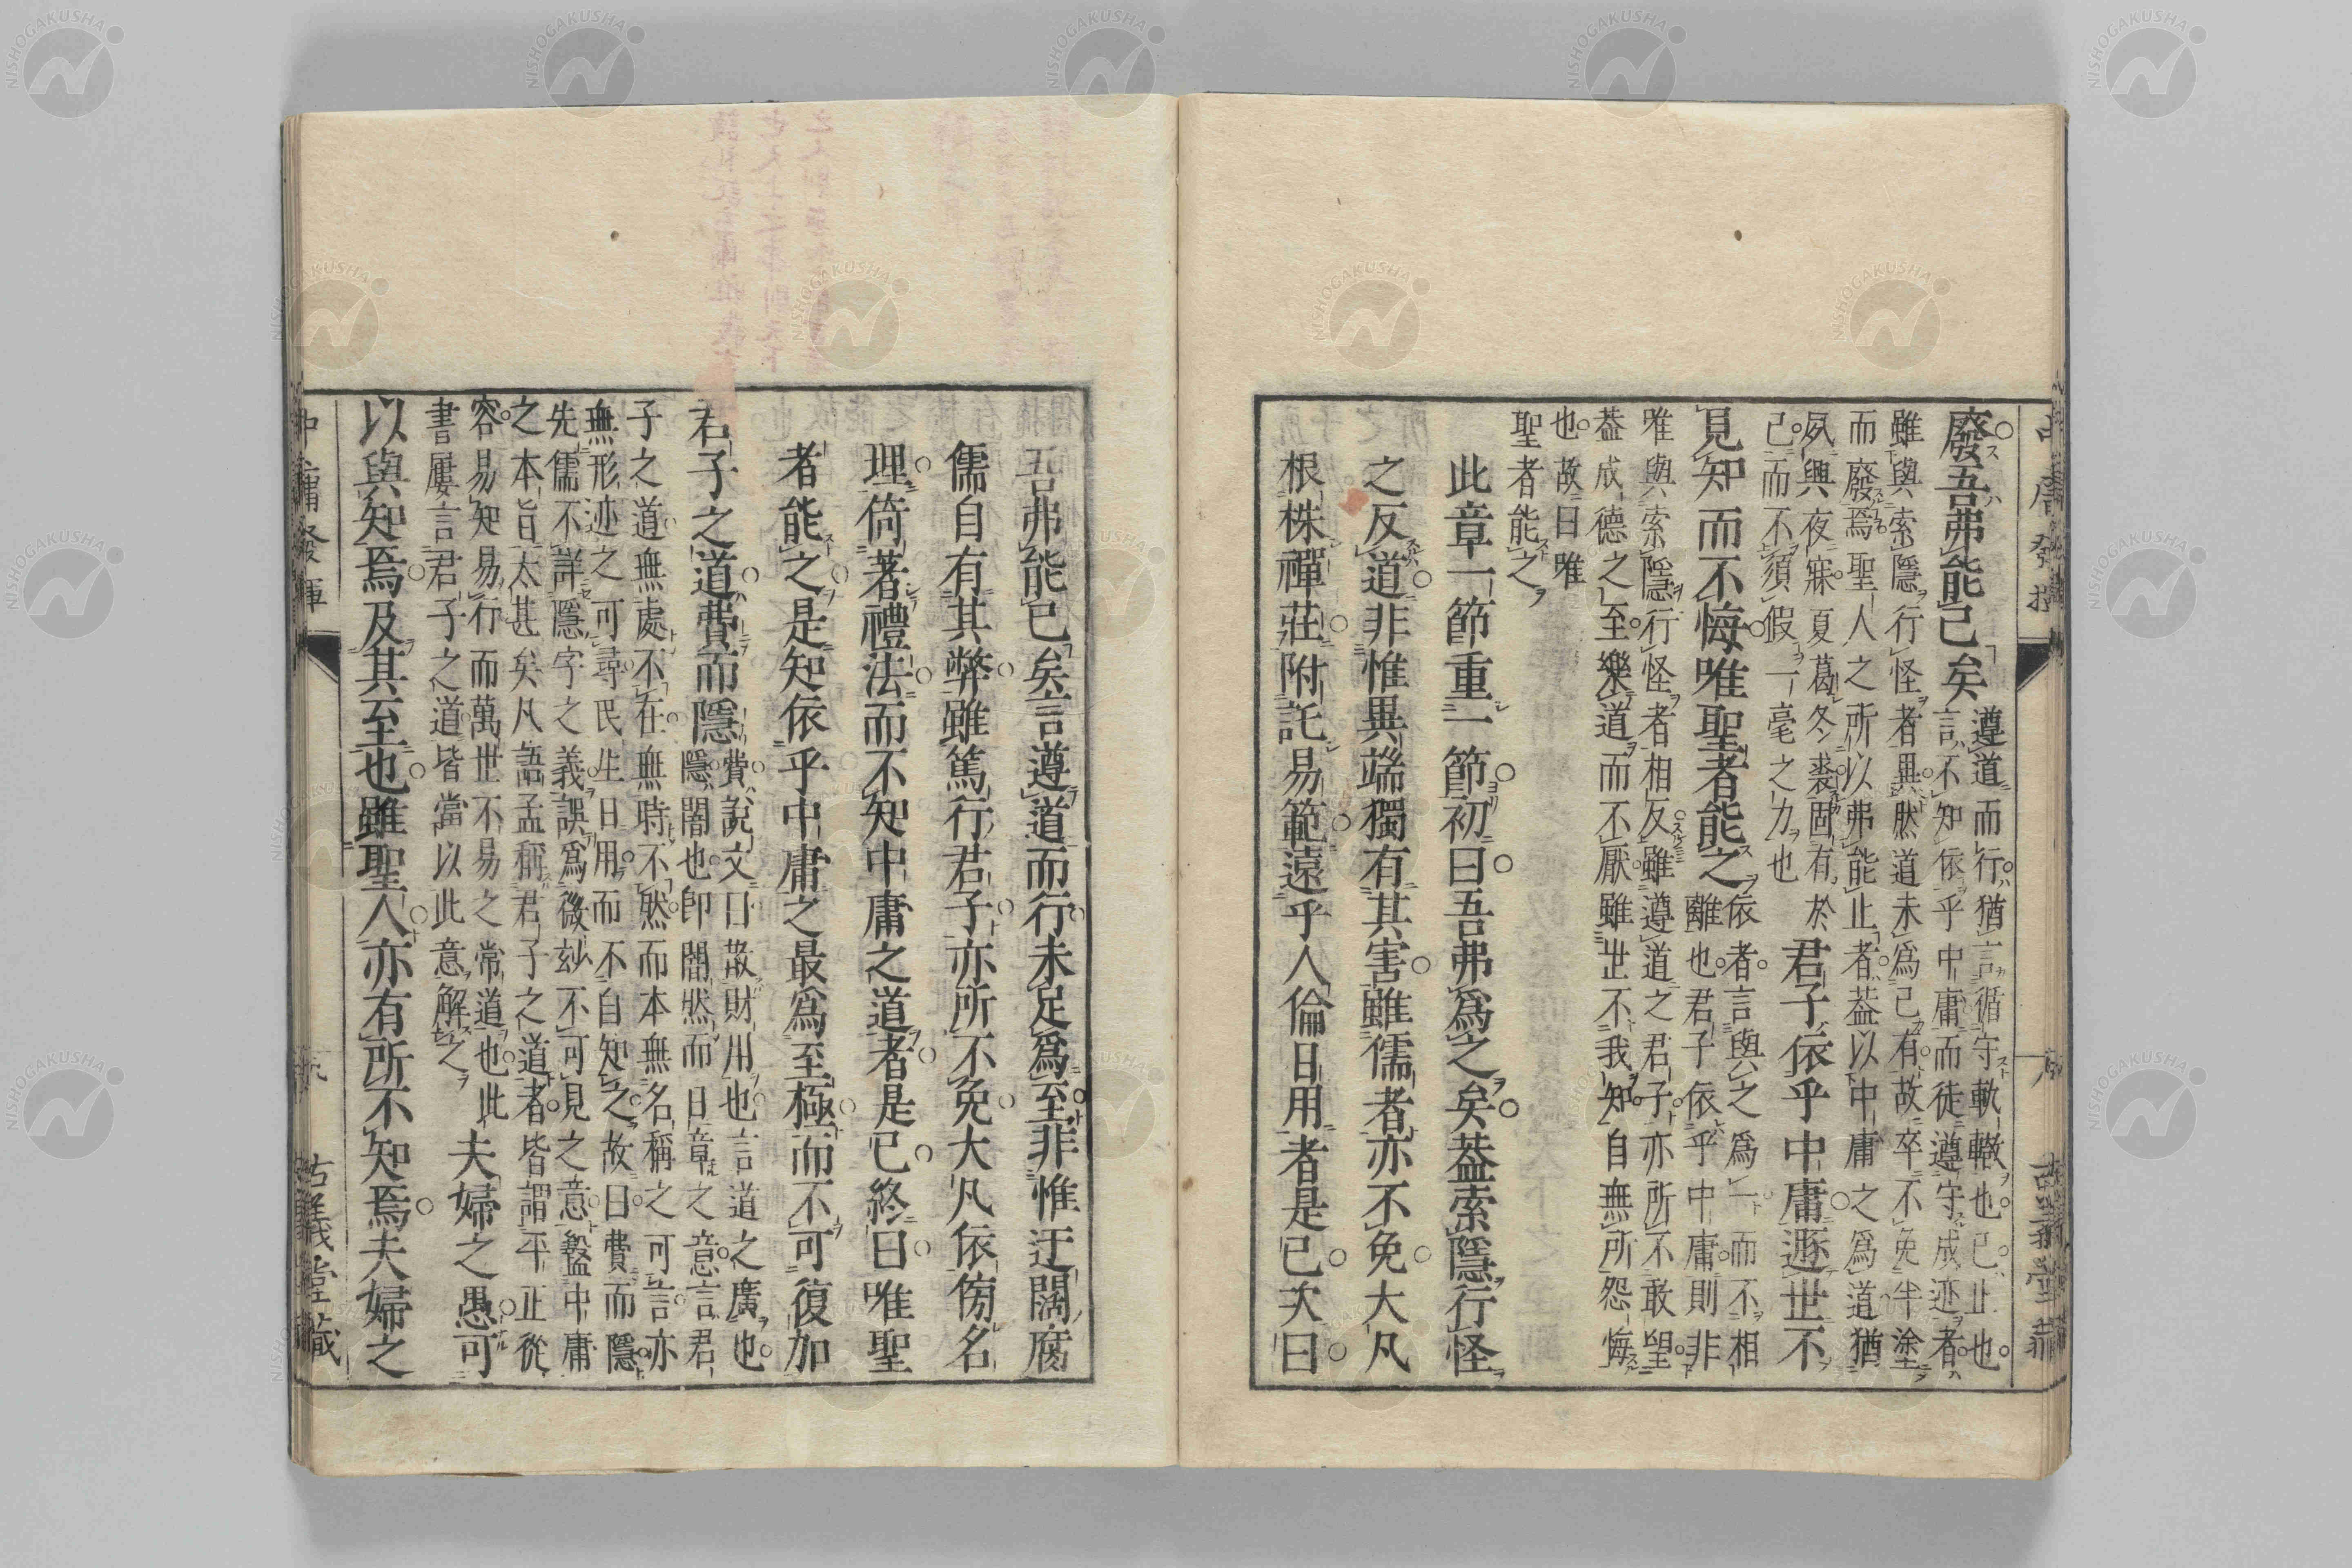 中庸發揮
古義堂藏
廢吾弗能已矣
遵道而行猶言循守軌轍也已止也
言不知依乎中庸而徒遵守成迹者
雖與索隱行怪者異然道未爲己有故卒不免半塗
而廢焉聖人之所以弗能止者蓋以中庸之爲道猶
夙興夜寐夏葛冬裘固有於
己而不須假一毫之力也
君子依乎中庸遯世不
見知而不悔唯聖者能之
依者言與之爲一而不相
離也君子依乎中庸則非
唯與索隱行怪者相反雖遵道之君子亦所不敢望
蓋成德之至樂道而不厭雖世不我知自無所怨悔
也故曰唯
聖者能之
此章一節重一節初曰吾弗爲之矣蓋索隱行怪
之反道非惟異端獨有其害雖儒者亦不免大凡
根株禪莊附託易範遠乎人倫日用者是已次曰
吾弗能已矣言遵道而行未足爲至非惟迂闊腐
儒自有其弊雖篤行君子亦所不免大凡依傍名
理倚著禮法而不知中庸之道者是已終曰唯聖
者能之是知依乎中庸之最爲至極而不可復加
君子之道費而隱
費說文曰散財用也言道之廣也
隱闇也卽闇然而日章之意言君
子之道無處不在無時不然而本無名稱之可言亦
無形迹之可尋民生日用而不自知之故曰費而隱
先儒不詳隱字之義誤爲微玅不可見之意盭中庸
之本旨太甚矣凡語孟稱君子之道者皆謂平正從
容易知易行而萬世不易之常道也此
書屢言君子之道皆當以此意解之
夫婦之愚可
以與知焉及其至也雖聖人亦有所不知焉夫婦之
中庸發揮
古義堂藏